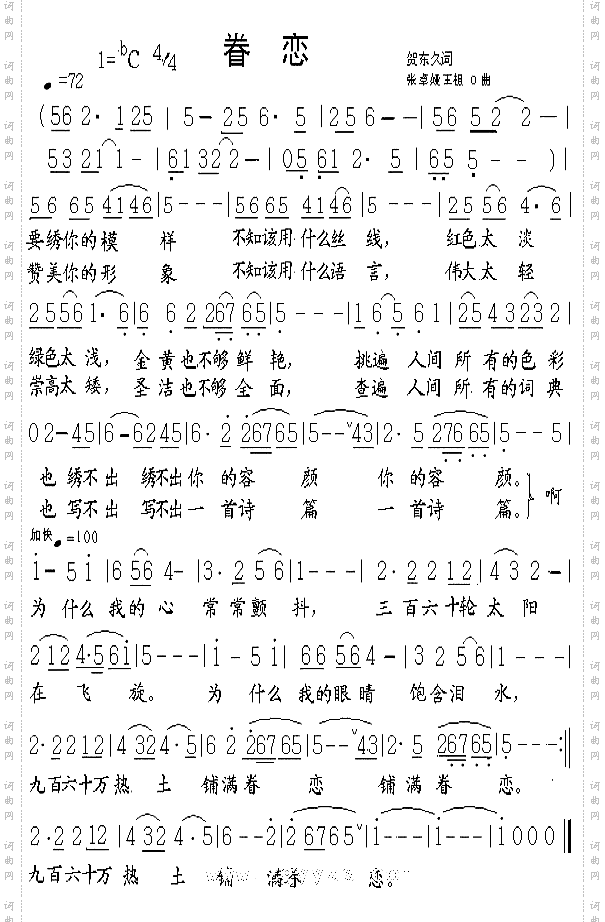 眷恋
1=♭C 4/4
♩=72
贺东久词
张卓娅王祖 0 曲
(56 2· 125 | 5- 25 6· 5 | 256-- | 56 52 2-|
5321 1- | 61322- | 05 61 2· 5 | 65 5-- )|
56 65 4146 | 5--- | 5665 4146 | 5---| 25 56 4·6
要绣你的模 样 不知该用什么丝线， 红色太 淡
赞美你的形 象 不知该用什么语言， 伟大太 轻
2556 1·6 | 6 6 2 267 65 | 5--- | 16 56 61 | 2543232 |
绿色太浅，金黄也不够鲜艳， 挑遍 人间所有的色彩
崇高太矮，圣洁也不够全面， 查遍 人间所有的词典
02-45 | 6-6245 | 5--- | 6·2 26765 | 5--43 | 2·5 27665 | 5--5 |
也绣不出 绣不出你 的容 颜 你的容 颜。
也写不出 写不出一 首诗 篇 一首诗 篇。 啊
加快♩=100
1-51 | 6564- | 3·2 5 32 | 1--- | 2·2212 | 432-|
为什么我的心 常常颤抖， 三百六十轮太阳
212 4·561 | 5--- | 1-51 | 66564- | 32561 | 1---|
在 飞 旋。 为 什么我的眼睛 饱含泪 水，
2·2212 | 4324·5 | 62 26765 | 5--43 | 2·5 26765 | 5---:‖
九百六十万热 土 铺满眷 恋 铺满眷 恋。
2·2212 | 4324·5 | 6--2 | 26765 | 1--- | 1--- | 1000‖
九百六十万热 土 铺 满眷 恋。
词曲网